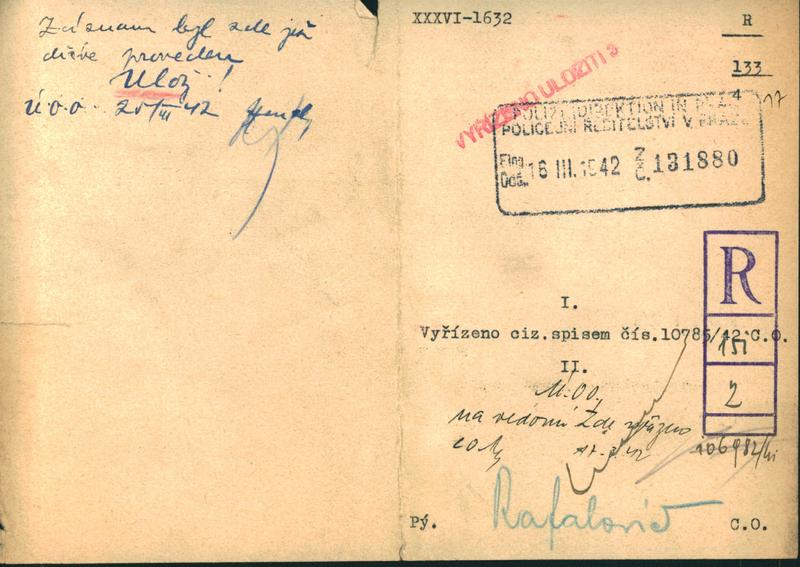 Záznam byl zde již
dříve proveden
Ulož!
Ú.O.O. 25/III 42
XXXVI-1632
R
133
4
17
VYŘÍZENO ULOŽITI
POLIZEIDIREKTION IN PRAG
POLICEJNÍ ŘEDITELSTVÍ V PRAZE
Eing.
Doš. 16 III. 1942 Z. Č. 131880
R
151
2
I.
Vyřízeno ciz.spisem čís.10785/42 C.O.
II.
Ú.O.O.
na vědomí Zde
42
106982
Pý.
Rafalovič
C.O.